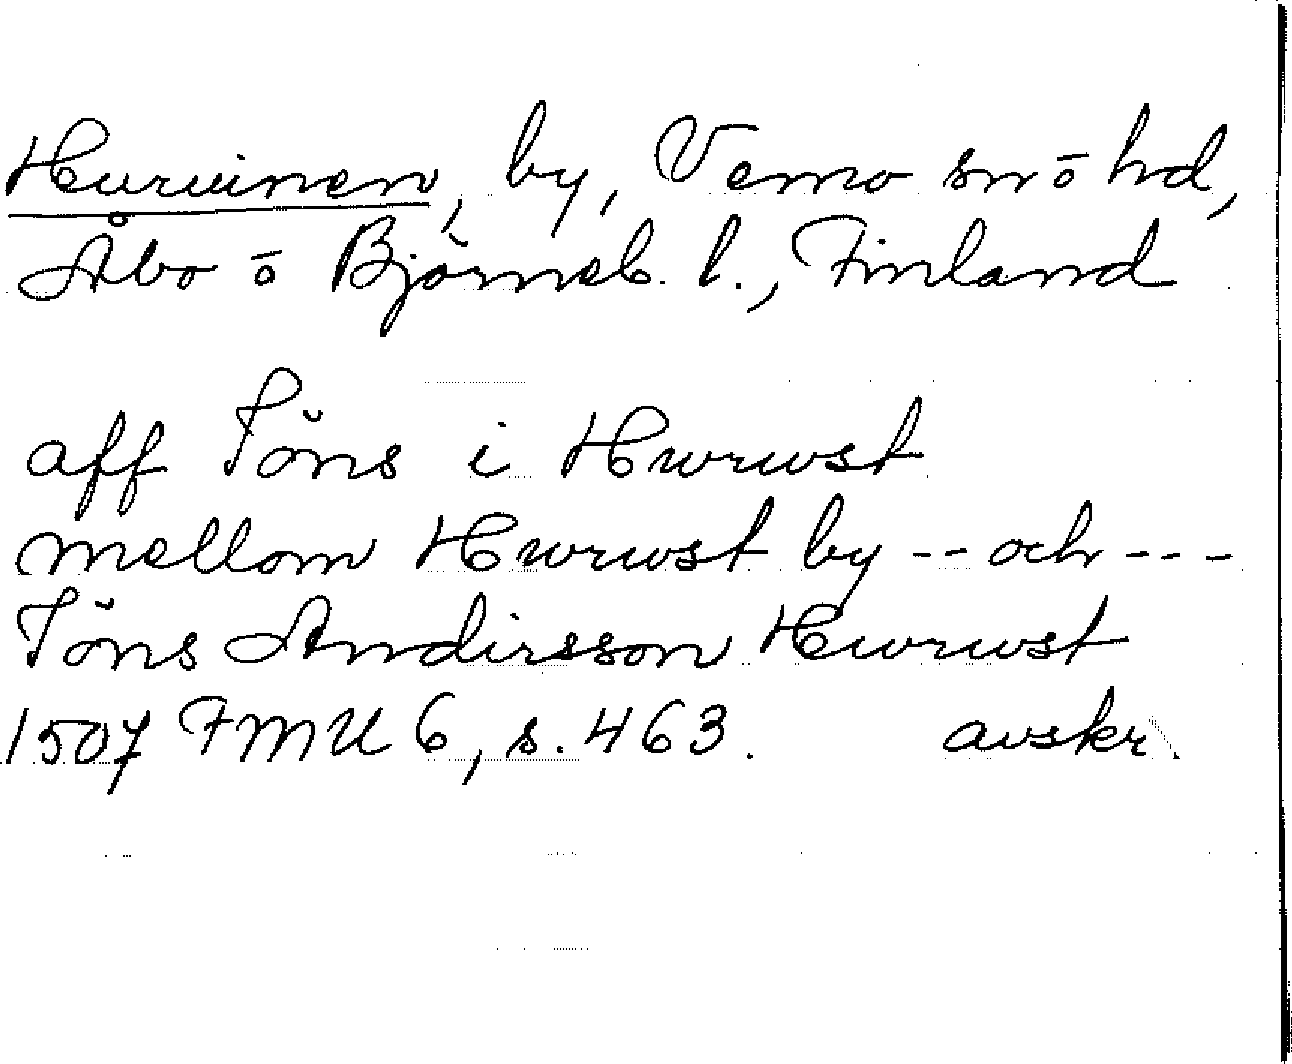 Huruinen, by, Vemo sn ō hd,
Åbo ō Björneb. l., Finland
aff Jöns i Hwrwst
mellom Hwrwst by -- och ---
Jöns Andirsson Hwrwst
1507 FMU 6, s. 463. avskr